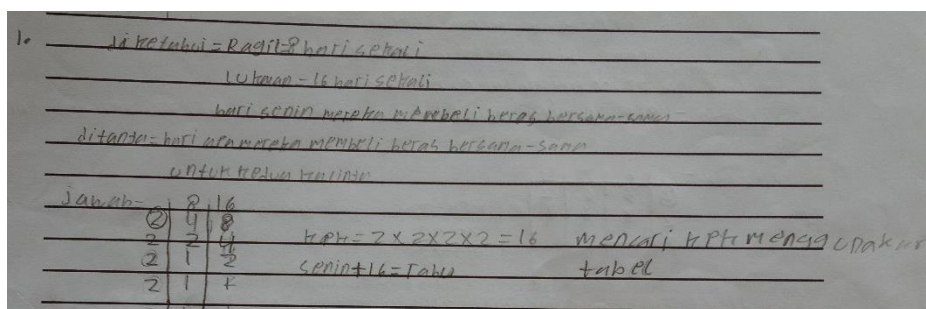 1. diketahui = Ragil = 8 hari sekali
Lukman - 16 hari sekali
hari senin mereka membeli beras bersama-sama
ditanya = hari apa mereka membeli beras bersama-sama
untuk kedua kalinya
jawab - 8 16
2 4 8
2 2 4 KPK = 2 x 2 x 2 x 2 = 16 mencari KPK menggunakan
2 1 2 senin + 16 = rabu tabel
2 1 1